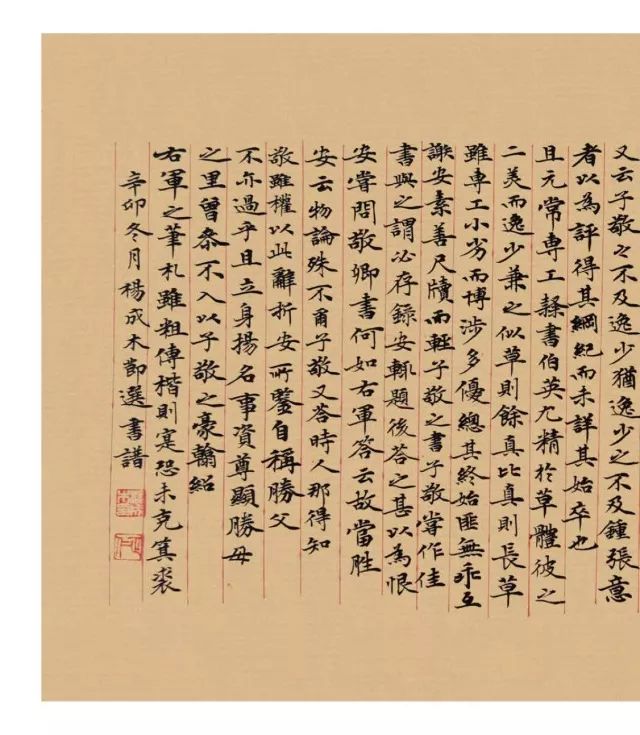 又云子敬之不及逸少猶逸少之不及鍾張意
者以為評得其綱紀而未詳其始卒也
且元常專工隸書伯英尤精於草體彼之
二美而逸少兼之似草則餘真比真則長草
雖專工小劣而博涉多優總其終始匪無乖互
謝安素善尺牘而輕子敬之書子敬嘗作佳
書與之謂必存錄安輒題後答之甚以為恨
安嘗問敬卿書何如右軍答云故當勝
安云物論殊不爾子敬又答時人那得知
敬雖權以此辭折安所鑒自稱勝父
不亦過乎且立身揚名事資尊顯勝母
之里曾參不入以子敬之豪翰紹
右軍之筆札雖粗傳楷則寔恐未克箕裘
辛卯冬月楊成木節選書譜